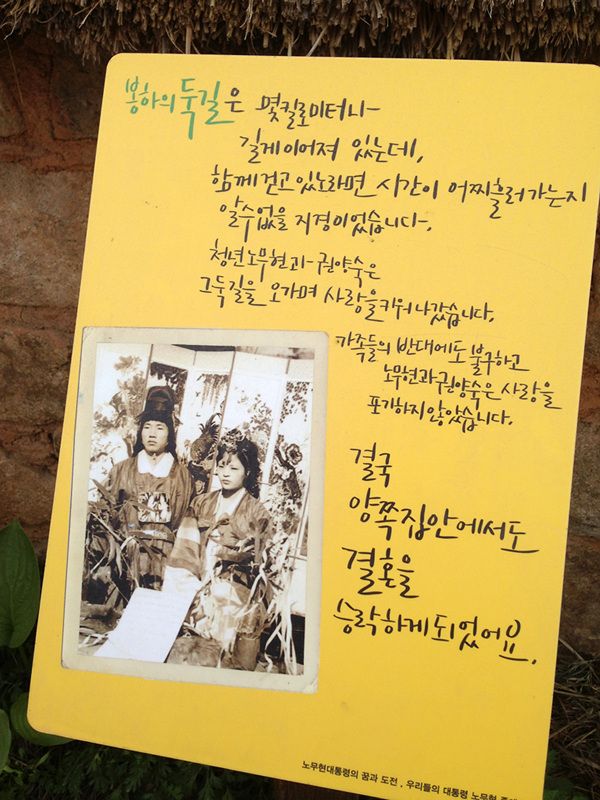 봉하의 둑길은 몇킬로미터나
길게이어져 있는데,
함께 걷고 있노라면 시간이 어찌흘러가는지
알수없을 지경이었습니다.
청년노무현과 권양숙은
그둑길을 오가며 사랑을키워 나갔습니다.
가족들의 반대에도 불구하고
노무현과권양숙은 사랑을
포기하지 않았습니다.
결국
양쪽집안에서도
결혼을
승락하게되었어요.
노무현대통령의 꿈과 도전, 우리들의 대통령 노무현